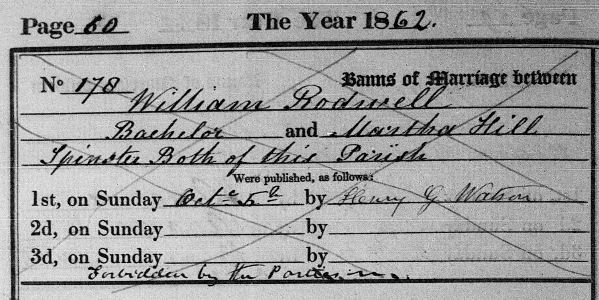 Page 60 The Year 1862.
No 178 Banns of Marriage between
William Rodwell
Bachelor and Martha Hill
Spinster Both of this Parish
Were published, as follows:
1st, on Sunday Octr 5th by Henry G Watson
2d, on Sunday by
3d, on Sunday by
Forbidden by the